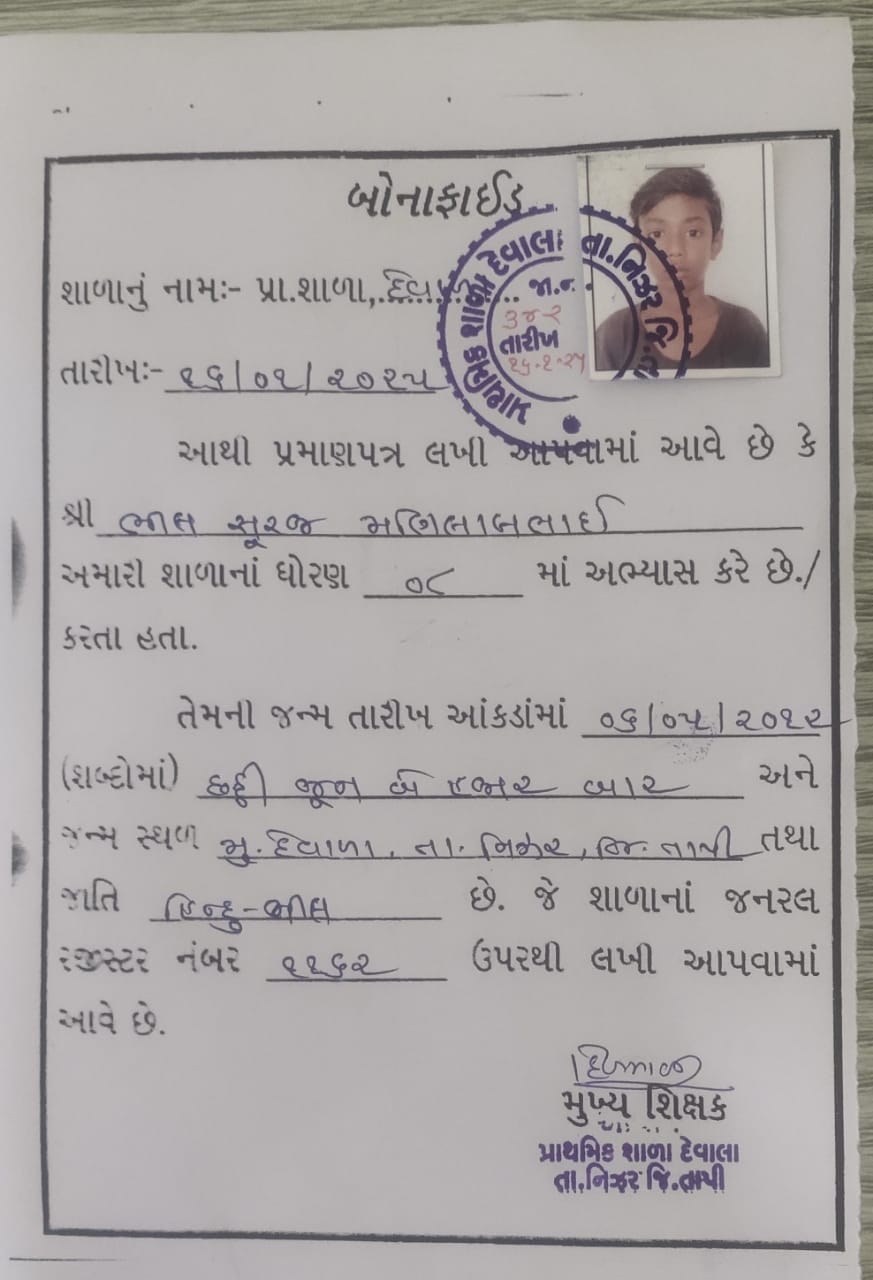 બોનાફાઈડ
શાળાનું નામઃ- પ્રા.શાળા, દેવાળા
પ્રાથમિક શાળા દેવાલા તા.નિઝર જિ.તા
જા.ન.
૩૪૨
તારીખ
૧૬-૧-૨૫
તારીખઃ- ૧૬/૦૧/૨૦૨૫
આથી પ્રમાણપત્ર લખી આપવામાં આવે છે કે
શ્રી ભીલ સૂરજ મણિલાલભાઈ
અમારી શાળાનાં ધોરણ ૦૮ માં અભ્યાસ કરે છે./
કરતા હતા.
તેમની જન્મ તારીખ આંકડાંમાં ૦૬/૦૫/૨૦૧૨
(શબ્દોમાં) છઠ્ઠી જૂન બે હજાર બાર અને
જન્મ સ્થળ મુ. દેવાળા, તા. નિઝર, જિ. તાપી તથા
જાતિ હિન્દુ-ભીલ છે. જે શાળાનાં જનરલ
રજીસ્ટર નંબર ૧૧૬૨ ઉપરથી લખી આપવામાં
આવે છે.
મુખ્ય શિક્ષક
પ્રાથમિક શાળા દેવાલા
તા.નિઝર જિ.તાપી